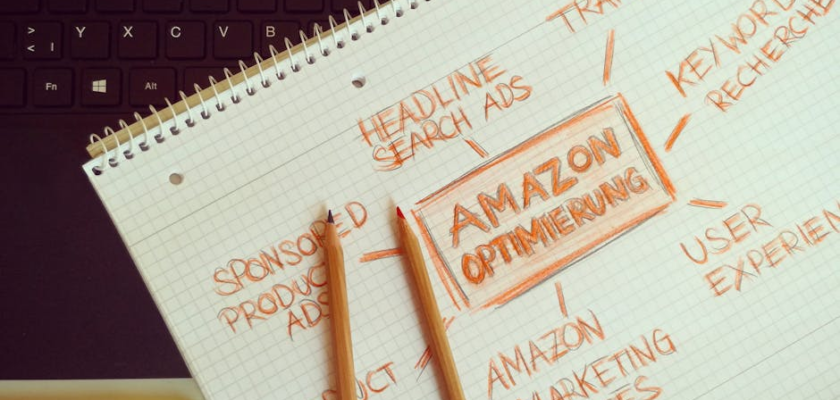 > Y X C V B
< |
Fn Alt
TRA
KEYWORD
RECHERCHE
HEADLINE
SEARCH ADS
AMAZON
OPTIMIERUNG
SPONSORED
PRODUCT
ADS
USER
EXPERIEN
AMAZON
MARKETING